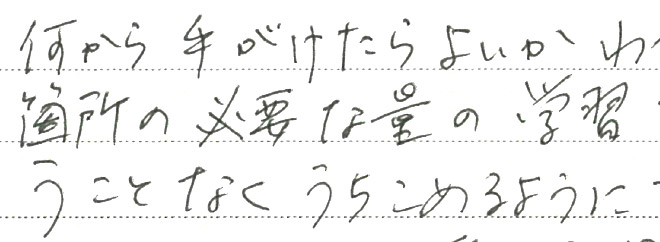 何から手がけたらよいかわ
箇所の必要な量の学習
うことなくうちこめるように